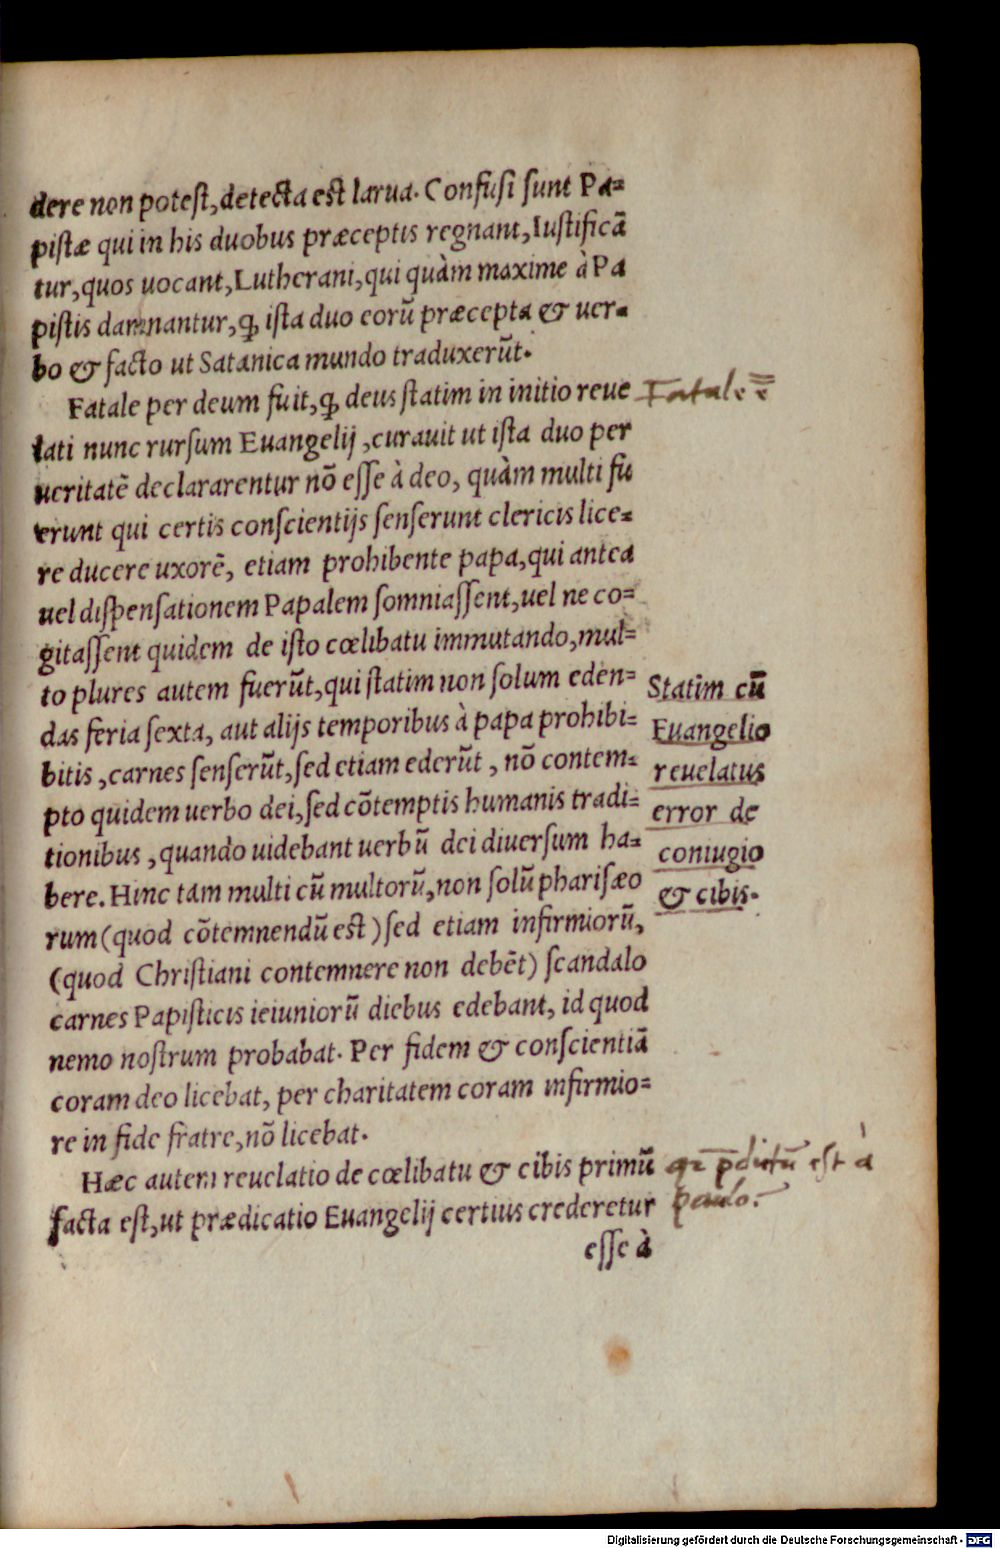 dere non potest,detecta est larua. Confusi sunt Pa=
pistæ qui in his duobus præceptis regnant,Iustificā
tur,quos uocant,Lutherani,qui quàm maxime à Pa
pistis damnantur,ꝙ ista duo eorū præcepta & uer=
bo & facto ut Satanica mundo traduxerūt.
Fatale per deum fuit,ꝙ deus statim in initio reue
Fatale ē
lati nunc rursum Euangelij,curauit ut ista duo per
ueritatē declararentur nō esse à deo, quàm multi fu
erunt qui certis conscientijs senserunt clericis lice=
re ducere uxorē, etiam prohibente papa,qui antea
uel dispensationem Papalem somniassent,uel ne co=
gitassent quidem de isto cœlibatu immutando,mul=
to plures autem fuerūt,qui statim non solum eden=
das feria sexta, aut alijs temporibus à papa prohibi=
bitis,carnes senserūt,sed etiam ederūt, nō contem=
pto quidem uerbo dei,sed cōtemptis humanis tradi=
tionibus,quando uidebant uerbū dei diuersum ha=
bere. Hinc tam multi cū multorū,non solū pharisæo
rum(quod cōtemnendū est)sed etiam infirmiorū,
(quod Christiani contemnere non debēt) scandalo
carnes Papisticis ieiuniorū diebus edebant, id quod
nemo nostrum probabat. Per fidem & conscientiā
coram deo licebat, per charitatem coram infirmio=
re in fide fratre,nō licebat.
Statim cū
Euangelio
reuelatus
error de
coniugio
& cibis.
Hæc autem reuelatio de cœlibatu & cibis primū
facta est,ut prædicatio Euangelij certius crederetur
p̄dictū est à
paulo.
esse à
Digitalisierung gefördert durch die Deutsche Forschungsgemeinschaft - DFG